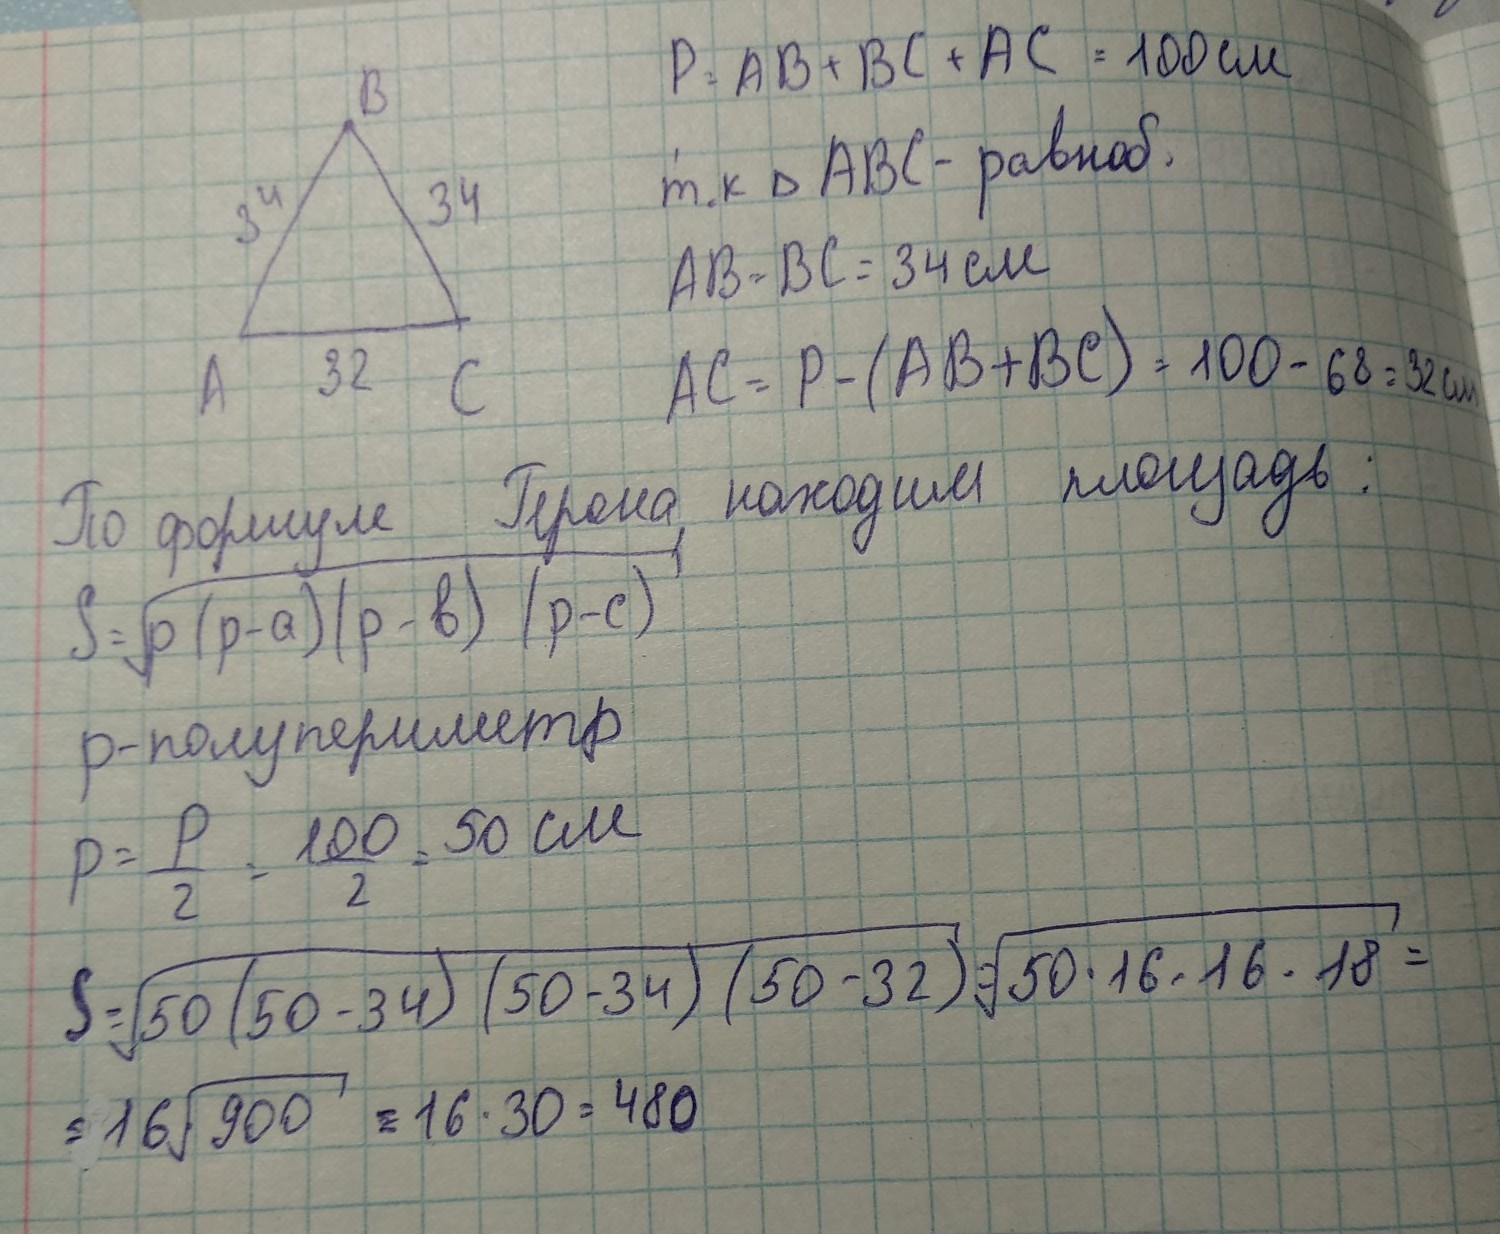 B
34
34
A
32
C
P = AB + BC + AC = 100 см
т.к △ ABC - равноб.
AB = BC = 34 см
AC = P - (AB + BC) = 100 - 68 = 32 см
По формуле Герона находим площадь:
S = √p(p-a)(p-в)(p-c)
p - полупериметр
p = P/2 = 100/2 = 50 см
S = √50(50-34)(50-34)(50-32) = √50·16·16·18 =
= 16√900 = 16·30 = 480